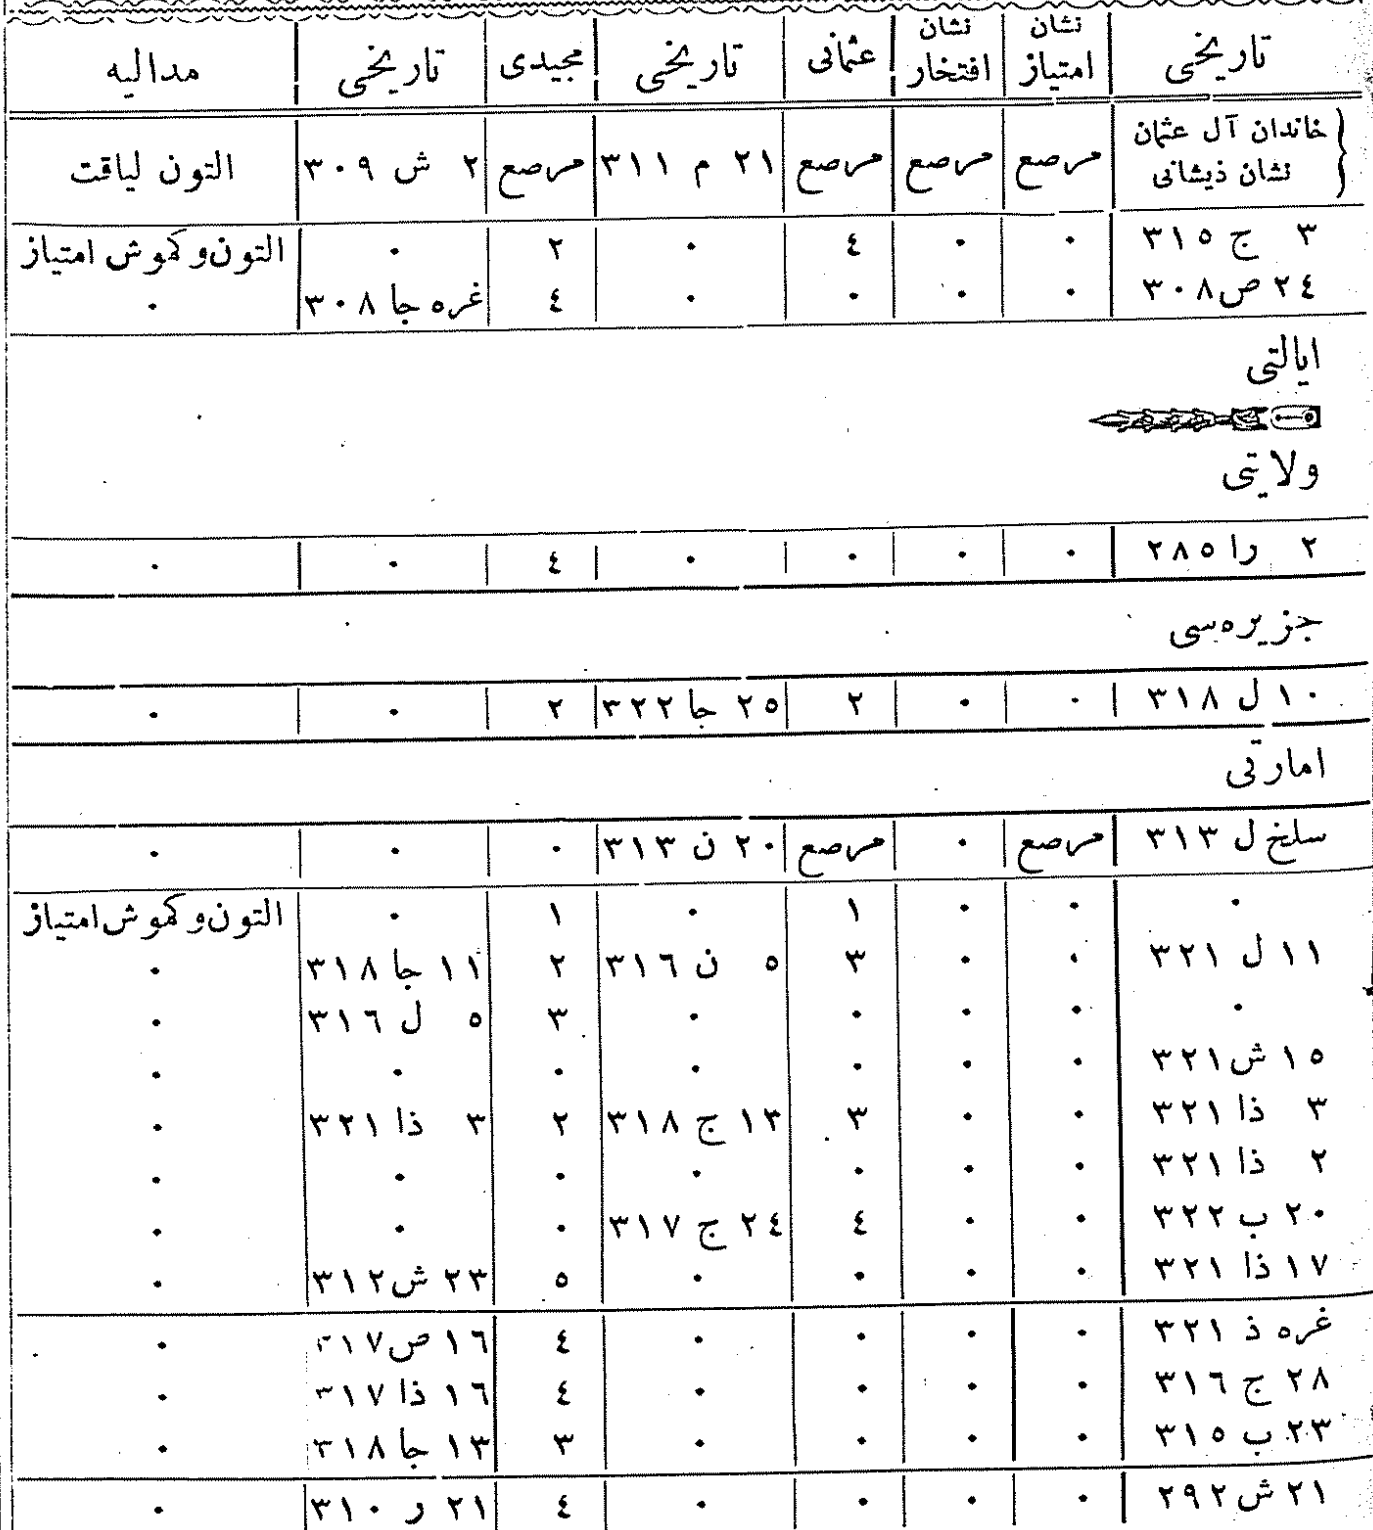 تاریخی | نشان امتیاز | نشان افتخار | عثمانی | تاریخی | مجیدی | تاریخی | مدالیه
خاندان آل عثمان نشان ذیشانی | مرصع | مرصع | مرصع | ٢١ م ٣١١ | مرصع | ٢ ش ٣٠٩ | التون لیاقت
٣ ج ٣١٥ | ٠ | ٠ | ٤ | ٠ | ٢ | ٠ | التون وکموش امتیاز
٢٤ ص ٣٠٨ | ٠ | ٠ | ٠ | ٠ | ٤ | غره جا ٣٠٨ | ٠
ایالتی
ولایتی
٢ را ٢٨٥ | ٠ | ٠ | ٠ | ٠ | ٤ | ٠ | ٠
جزیره‌سی
١٠ ل ٣١٨ | ٠ | ٠ | ٢ | ٢٥ جا ٣٢٢ | ٢ | ٠ | ٠
امارتی
سلخ ل ٣١٣ | مرصع | ٠ | مرصع | ٢٠ ن ٣١٣ | ٠ | ٠ | ٠
٠ | ٠ | ٠ | ١ | ٠ | ١ | ٠ | التون وکموش امتیاز
١١ ل ٣٢١ | ٠ | ٠ | ٣ | ٥ ن ٣١٦ | ٢ | ١١ جا ٣١٨ | ٠
٠ | ٠ | ٠ | ٠ | ٠ | ٣ | ٥ ل ٣١٦ | ٠
١٥ ش ٣٢١ | ٠ | ٠ | ٠ | ٠ | ٠ | ٠ | ٠
٣ ذا ٣٢١ | ٠ | ٠ | ٣ | ١٣ ج ٣١٨ | ٢ | ٣ ذا ٣٢١ | ٠
٢ ذا ٣٢١ | ٠ | ٠ | ٠ | ٠ | ٠ | ٠ | ٠
٢٠ ب ٣٢٢ | ٠ | ٠ | ٤ | ٢٤ ج ٣١٧ | ٠ | ٠ | ٠
١٧ ذا ٣٢١ | ٠ | ٠ | ٠ | ٠ | ٥ | ٢٣ ش ٣١٢ | ٠
غره ذ ٣٢١ | ٠ | ٠ | ٠ | ٠ | ٤ | ١٦ ص ٣١٧ | ٠
٢٨ ج ٣١٦ | ٠ | ٠ | ٠ | ٠ | ٤ | ١٦ ذا ٣١٧ | ٠
٢٣ ب ٣١٥ | ٠ | ٠ | ٠ | ٠ | ٣ | ١٣ جا ٣١٨ | ٠
٢١ ش ٢٩٢ | ٠ | ٠ | ٠ | ٠ | ٤ | ٢١ ر ٣١٠ | ٠